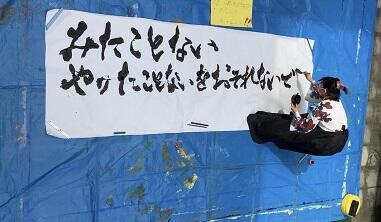 みたことない
やったことないをおそれないで